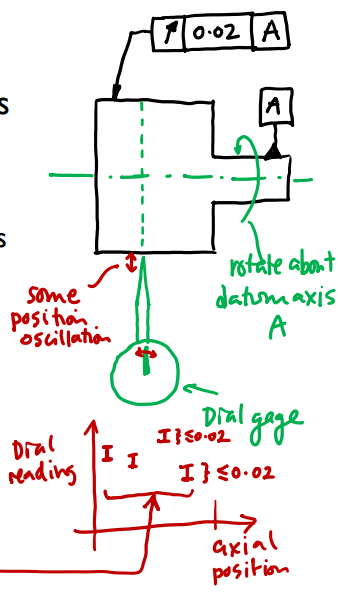 ↗ 0.02 A
A
s
s
rotate about
datum axis
A
some
position
oscillation
Dial gage
Dial
reading
I I I } ≤0.02
I } ≤0.02
axial
position